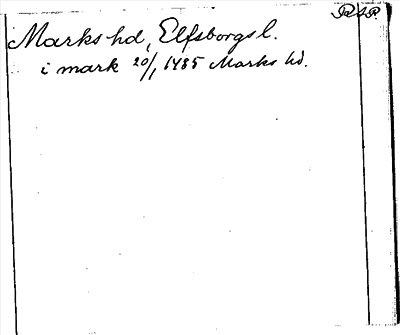 Marks hd, Elfsborgs l.
i mark 20/1 1485 Marks hd.